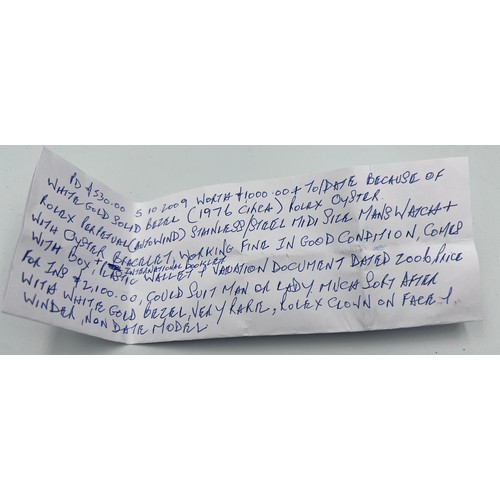 PD £530.00 5 10 2009 WORTH £1000.00+ TO/DATE BECAUSE OF
WHITE GOLD SOLID BEZEL (1976 CIRCA) ROLEX OYSTER.
ROLEX PERPETUAL (AUTOWIND) STAINLESS/STEEL MIDI SIZE MANS WATCH +
WITH OYSTER BRACELET, WORKING FINE IN GOOD CONDITION, COMES
WITH BOX, + INTERNATIONAL BOOKLET
PLASTIC WALLET & VALATION DOCUMENT DATED 2006, PRICE
FOR INS £2,100.00, COULD SUIT MAN OR LADY MUCH SORT AFTER
WITH WHITE GOLD BEZEL, VERY RARE, ROLEX CLOWN ON FACE &
WINDER, NON DATE MODEL